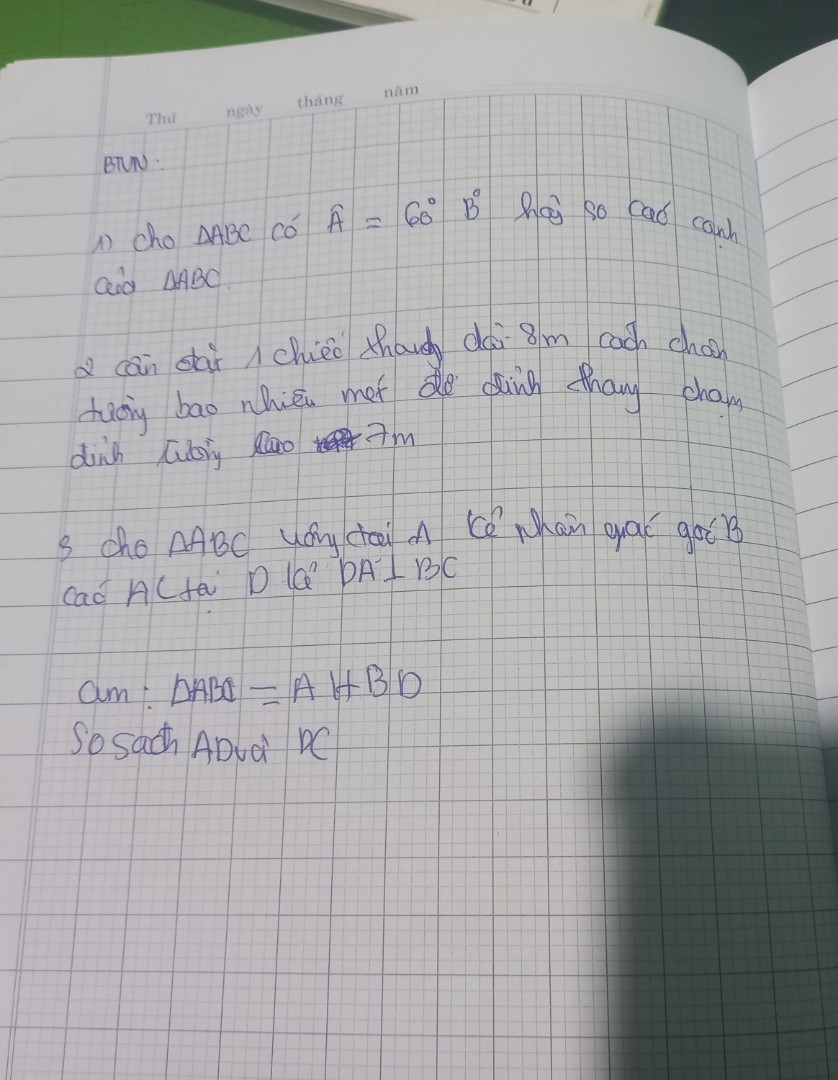 Thứ ngày tháng năm
BTVN:
1) Cho ΔABC có Â = 60° B° hãy so các cạnh
của ΔABC.
2 cần đặt 1 chiếc thang dài 8m cách chân
tường bao nhiêu mét để đỉnh thang chạm
đỉnh tường cao 7m
3 cho ΔABC vuông tại A kẻ phân giác góc B
cắt AC tại D kẻ DA⊥BC
Cm: ΔABD = AHBD
So sách AD và DC